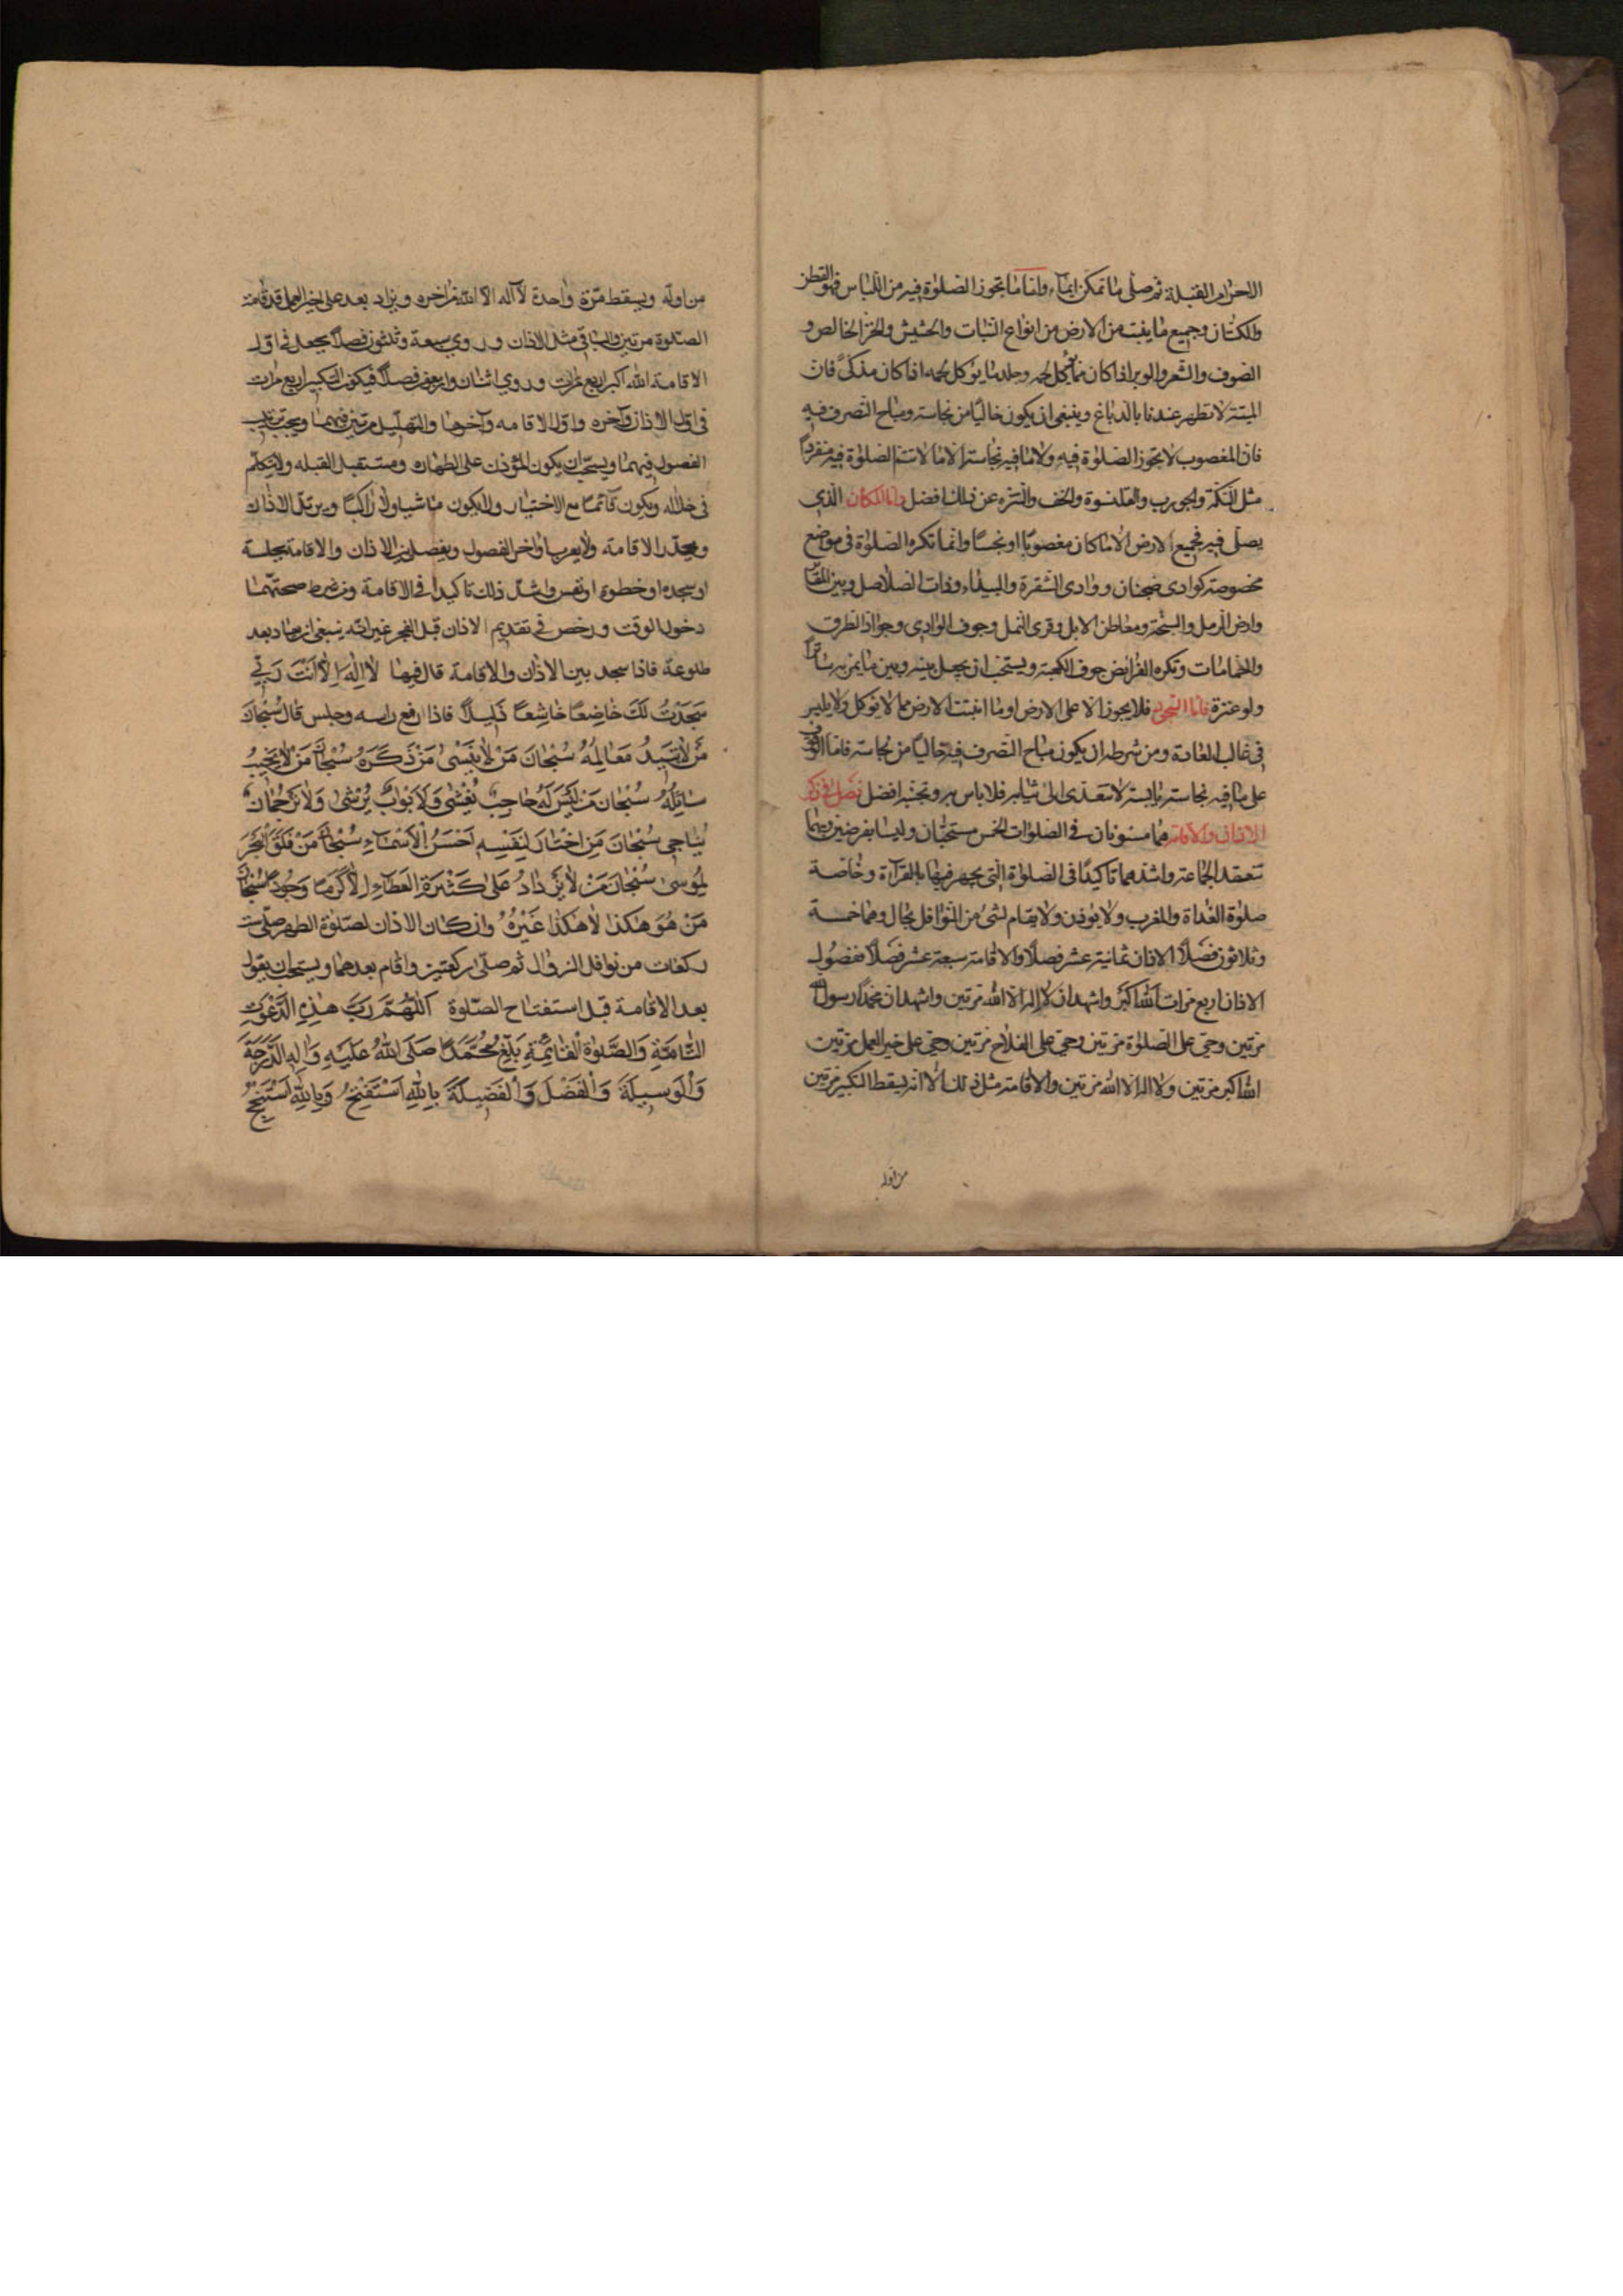 الاحرام القبلة ثم صلى ما تمكن ايماء واما ما تجوز الصلوة فيه من اللباس فهو القطن
والكتان وجميع ما ينبت من الارض من انواع النبات والحشيش والخز الخالص و
الصوف والشعر والوبر اذا كان مما يؤكل لحمه وجلد ما يؤكل لحمه اذا كان مذكى فان
الميتة لا تطهر عندنا بالدباغ وينبغى ان يكون خاليا من نجاسة ومباح التصرف فيه
فان المغصوب لا يجوز الصلوة فيه ولا ما فيه نجاسة الا ما لا تتم الصلوة فيه منفردا
مثل التكة والجورب والقلنسوة والخف والتنزه عن ذلك افضل واما المكان الذي
يصلى فيه فجميع الارض الا ما كان مغصوبا او نجسا وانما تكره الصلوة فى مواضع
مخصوصة كوادى ضجنان ووادى الشقرة والبيداء وذات الصلاصل وبين المقابر
وارض الرمل والسبخة ومعاطن الابل وقرى النمل وجوف الوادى وجواد الطرق
والحمامات وتكره الفرائض جوف الكعبة ويستحب ان يجعل بينه وبين ما يمر به ساترا
ولو عنزة فاما السجود فلا يجوز الا على الارض او ما انبتت الارض مما لا يؤكل ولا يلبس
فى غالب العادة ومن شرطه ان يكون مباح التصرف فيه خاليا من نجاسة فاما الوقوف
على ما فيه نجاسة يابسة لا تتعدى الى ثيابه فلا باس به وتجنبه افضل فصل فى ذكر
الاذان والاقامة هما مسنونان فى الصلوات الخمس مستحبان وليسا بفرضين وبهما
تنعقد الجماعة واشدهما تاكيدا فى الصلوة التى يجهر فيها بالقرآءة وخاصة
صلوة الغداة والمغرب ولا يؤذن ولا يقام لشئ من النوافل بحال وهما خمسة
وثلاثون فصلا الاذان ثمانية عشر فصلا والاقامة سبعة عشر فصلا ففصول
الاذان اربع مرات الله اكبر واشهد ان لا اله الا الله مرتين واشهد ان محمدا رسول الله
مرتين وحى على الصلوة مرتين وحى على الفلاح مرتين وحى على خير العمل مرتين
الله اكبر مرتين ولا اله الا الله مرتين والاقامة مثل ذلك الا انه يسقط التكبير مرتين
من اوله
من اوله ويسقط مرة واحدة لا آله الا الله من اخره ويزاد بعد حى على خير العمل قد قامت
الصلوة مرتين والباقى مثل الاذان وروي سبعة وثلثون فصلا يجعل فى اول
الاقامة الله اكبر اربع مرات وروي اثنان واربعون فصلا فيكون التكبير اربع مرات
فى اول الاذان وآخره واول الاقامه وآخرها والتهليل مرتين فيهما ويجب ترتيب
الفصول فيهما ويستحب ان يكون المؤذن على الطهاره ومستقبل القبله ولا يتكلم
فى خلاله ويكون قائما مع الاختيار ولا يكون ماشيا ولا راكبا ويرتل الاذان
ويحدر الاقامة ولا يعرب اواخر الفصول ويفصل بين الاذان والاقامة بجلسة
او سجده او خطوة او نفس واشد ذلك تاكيدا فى الاقامة ومن شرط صحتهما
دخول الوقت ورخص فى تقديم الاذان قبل الفجر غير انه ينبغى ان يعاد بعد
طلوعه فاذا سجد بين الاذان والاقامة قال فيها لا اله الا انت ربي
سجدت لك خاضعا خاشعا ذليلا فاذا رفع راسه وجلس قال سبحان
من لا تبيد معالمه سبحان من لا ينسى من ذكره سبحان من لا يخيب
سائله سبحان من ليس له حاجب يغشى ولا بواب يرشى ولا ترجمان
يناجى سبحان من اختار لنفسه احسن الاسماء سبحان من فلق البحر
لموسى سبحان من لا يزداد على كثرة العطاء الا كرما وجودا سبحان
من هو هكذا لا هكذا غيره وان كان الاذان لصلوة الظهر صلى ست
ركعات من نوافل الزوال ثم صلى ركعتين واقام بعدهما ويستحب ان يقول
بعد الاقامة قبل استفتاح الصلوة اللهم رب هذه الدعوة
التامة والصلوة القائمة بلغ محمدا صلى الله عليه واله الدرجة
والوسيلة والفضل والفضيلة بالله استفتح وبالله استنجح